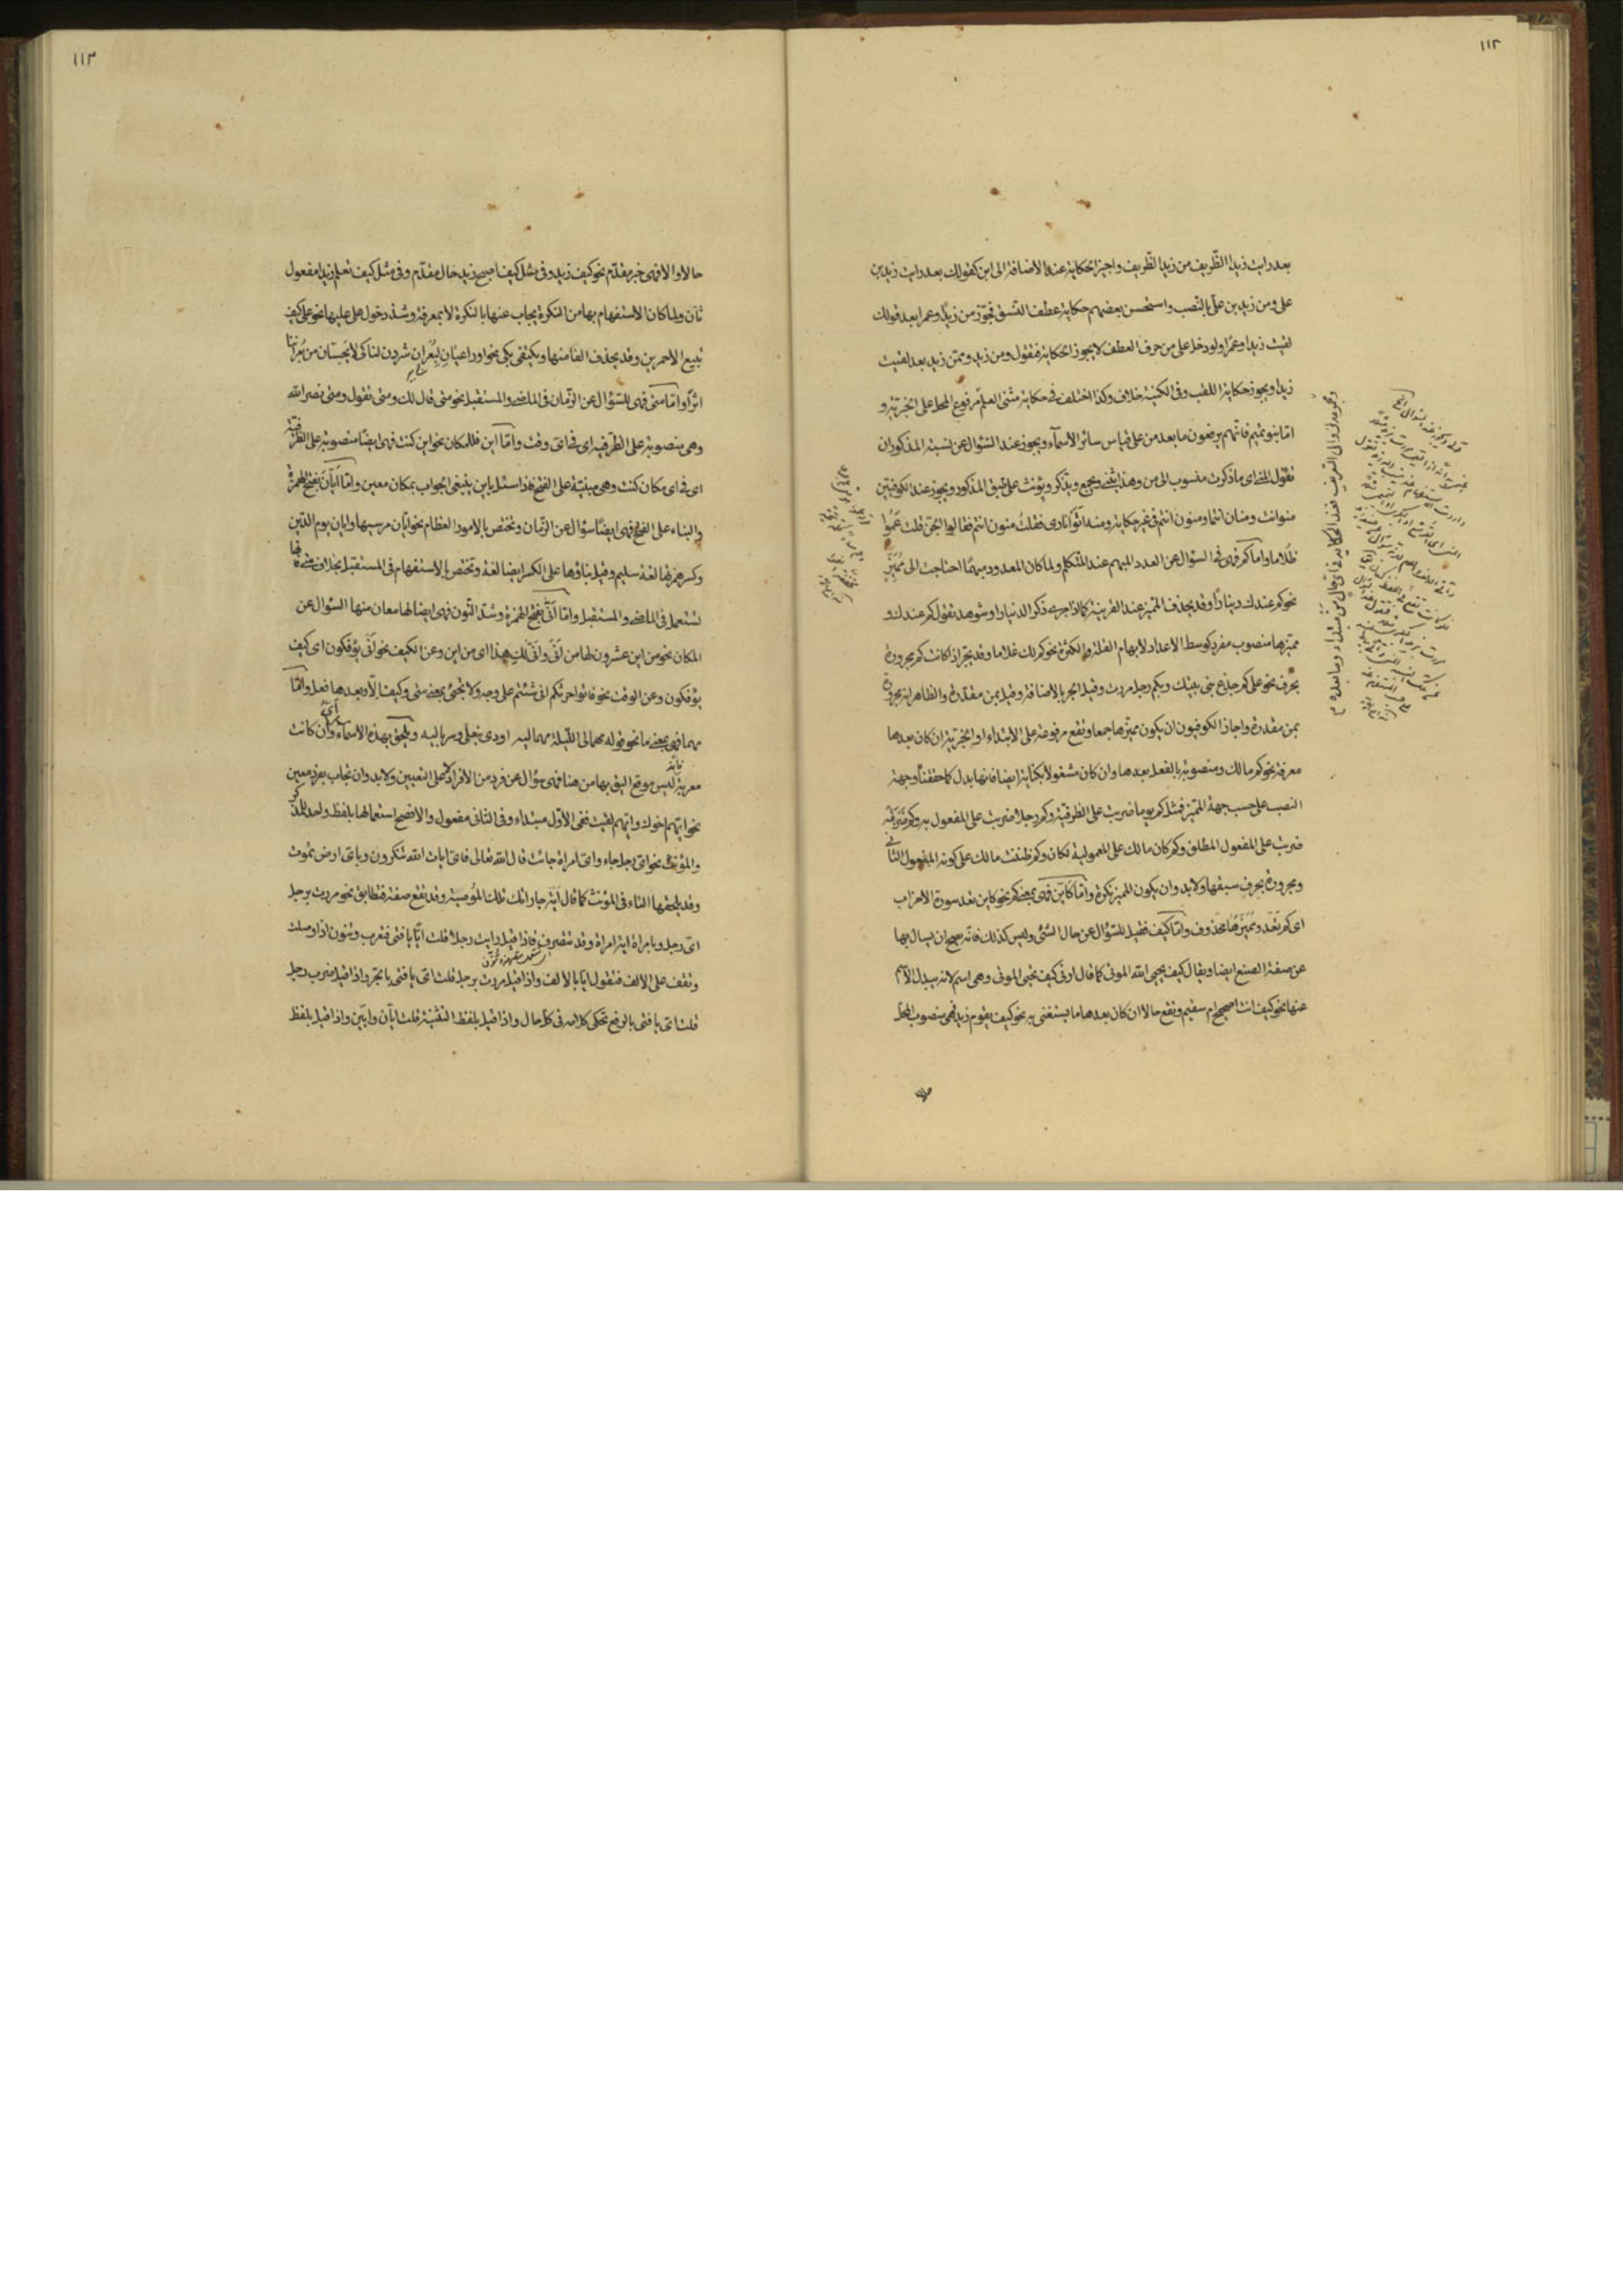 ١١٢
بعد رايت زيدا الظّريف من زيدا الظريف واجيز الحكاية عند الاضافة الى ابن كقولك بعد رايت زيد بن
على ومن زيد بن علىّ بالنّصب واستحسن بعضهم حكاية عطف النّسق فجوّز من زيدًا وعمرا بعد قولك
لقيت زيدا وعمرًا ولو دخل على من حرف العطف لا يجوز الحكاية فتقول ومن زيد وبمن زيد بعد لقيت
زيدا ويجوز حكاية اللقب وفى الكنية خلاف وكذا اختلف فى حكاية مثنى العلم مرفوع المحل على الخبريّة و
امّا بنو تميم فانّهم يرفعون ما بعد من على قياس سائر الاسمآء ويجوز عند السّؤال عن نسبة المذكور ان
تقول المنى اى ماذكرت منسوب الى من وهذا يثنى ويجمع ويذكر ويؤنث على طبق المذكور ويجوز عند الكوفيّين
منوانت ومنان انتما ومنون انتم فى غير حكاية ومنه اتوا نارى فقلت منون انتم فقالوا الجنّ قلت عموا
ظلاما واما كم فهى فى السؤال عن العدد المبهم عند المتكلم ولما كان المعدود مبهمًا احتاجت الى مميّز
نحو كم عندك دينارًا وقد يحذف المميّز عند القرينة كما اذا جرى ذكر الدنيار او شوهد تقول كم عندك و
مميّزها منصوب مفرد كوسط الاعداد لابهام القلة والكثرة نحو كم لك غلاما وقد يجرّ اذا كانت كم مجرورة
بحرف نحو على كم جذع بنى بيتك وبكم رجل مررت وقيل الجرّ بالاضافة وقيل بمن مقدرة والظاهر انه مجرور
بمن مقدرة واجاز الكوفيون ان يكون مميّزها جمعا وتقع مرفوعة على الابتداء او الخبريّة ان كان بعدها
معرفة نحو كم مالك ومنصوبة بالفعل بعدها وان كان مشغولا بكناية ايضا فانها بدل كما حققنا وجهة
النصب على حسب جهة المميّز فمثل كم يوما ضربت على الظرفية وكم رجلا ضربت على المفعول به وكم ضربة
ضربت على المفعول المطلق وكم كان مالك على المعمولية لكان وكم ظننت مالك على كونه المفعول الثانى
ومجرورة بحرف سبقها ولا بد وان يكون المميز نكرة وامّا كايّن فهى بمعنى كم نحو كاين تعد سورة الاحزاب
اى كم تعدّ ومميّزها محذوف وامّا كيف فقيل للسّؤال عن حال الشّئ وليس كذلك فانّه صحيح ان يسال بها
عن صفة الصنع ايضا ويقال كيف يحيى اللّه الموتى كما قال ارنى كيف تحيى الموتى وهى اسم لانه يبدل الاسم
عنها نحو كيف انت اصحيح ام سقيم وتقع حالا ان كان بعدها ما يستغنى به نحو كيف يقوم زيد فهى منصوب المحل
١١٣
حالا والا فهى خبر مقدّم نحو كيف زيد وفى مثل كيف اصبح زيد حال مقدّم وفى مثل كيف تعلم زيدا مفعول
ثان ولما كان الاستفهام بها من النكرة يجاب عنها بالنكرة لا بمعرفة وشذ دخول على عليها نحو على كيف
تبيع الاحمرين وقد يحذف الفا منها ويكتفى بكى نحو او راعيان لبعران شردن لنا كى لا يحسّان من بعراننا
اثرا وامّا متى فهى للسّؤال عن الزّمان فى الماضى والمستقبل نحو متى قال لك ومتى تقول ومتى نصر اللّه
وهى منصوبة على الظّرفيه اى فى اىّ وقت وامّا اين فللمكان نحو اين كنت فهى ايضًا منصوبة على الظرفيّة
اى فى اى مكان كنت وهى مبنيّة على الفتح فاذا سئل باين ينبغى الجواب بمكان معين وامّا ايّان بفتح الهمزة
والبناء على الفتح فهى ايضًا سؤال عن الزّمان وتختص بالامور العظام نحو ايّان مرسيها وايان يوم الدّين
وكسر همزتها لغة سليم وقيل بناؤها على الكسر ايضا لغة وتختص بالاستفهام فى المستقبل بخلاف متى فانها
تستعمل فى الماضى والمستقبل وامّا انّى بفتح الهمزة وشدّ النّون فهى ايضا لها معان منها السّؤال عن
المكان نحو من اين عشرون لها من انّى وانّى لك هذا اى من اين وعن الكيف نحو انّى يؤفكون اى كيف
يؤفكون وعن الوقت نحو فاتوا حرثكم انى شئتم على وجه ولا يجئ بمعنى متى وكيف الّا وبعدها فعل وامّا
مهما فهى بمعنى ما نحو قوله مهما لى اللّيلة مهما ليه اودى بنعلىّ وسرباليه ويلحق بهذه الاسماء اىّ وان كانت
معربة ليس موقع اليق بها من هنا فهى سؤال عن فرد من الافراد لا على التعيين ولا بد وان تجاب بفرد معين
نحو ايّهم اخوك وايّهم لقيت ففى الاوّل مبتداء وفى الثانى مفعول والافصح استعمالها بلفظ واحد للمذكر
والمؤنّث نحو اىّ رجل جاء واىّ امراة جائت قال اللّه تعالى فاىّ ايات اللّه تنكرون وباىّ ارض تموت
وقد يلحقها التاء فى المؤنث كما قال ايّة جاراتك تلك الموصية وقد تقع صفة فتطابق نحو مررت برجل
اىّ رجل وبامراة اية امراة وقد تتصرف فاذا قيل رايت رجلا قلت ايّا يا فتى فتعرب وتنون اذا وصلت
وتقف على الالف فتقول ايّا بالالف واذا قيل مررت برجل قلت اىّ يا فتى بالجرّ واذا قيل ضرب رجل
قلت اىّ يا فتى بالرفع تحكى كلامه فى كل حال واذا قيل بلفظ التثنية قلت ايّان وايّين واذا قيل بلفظ